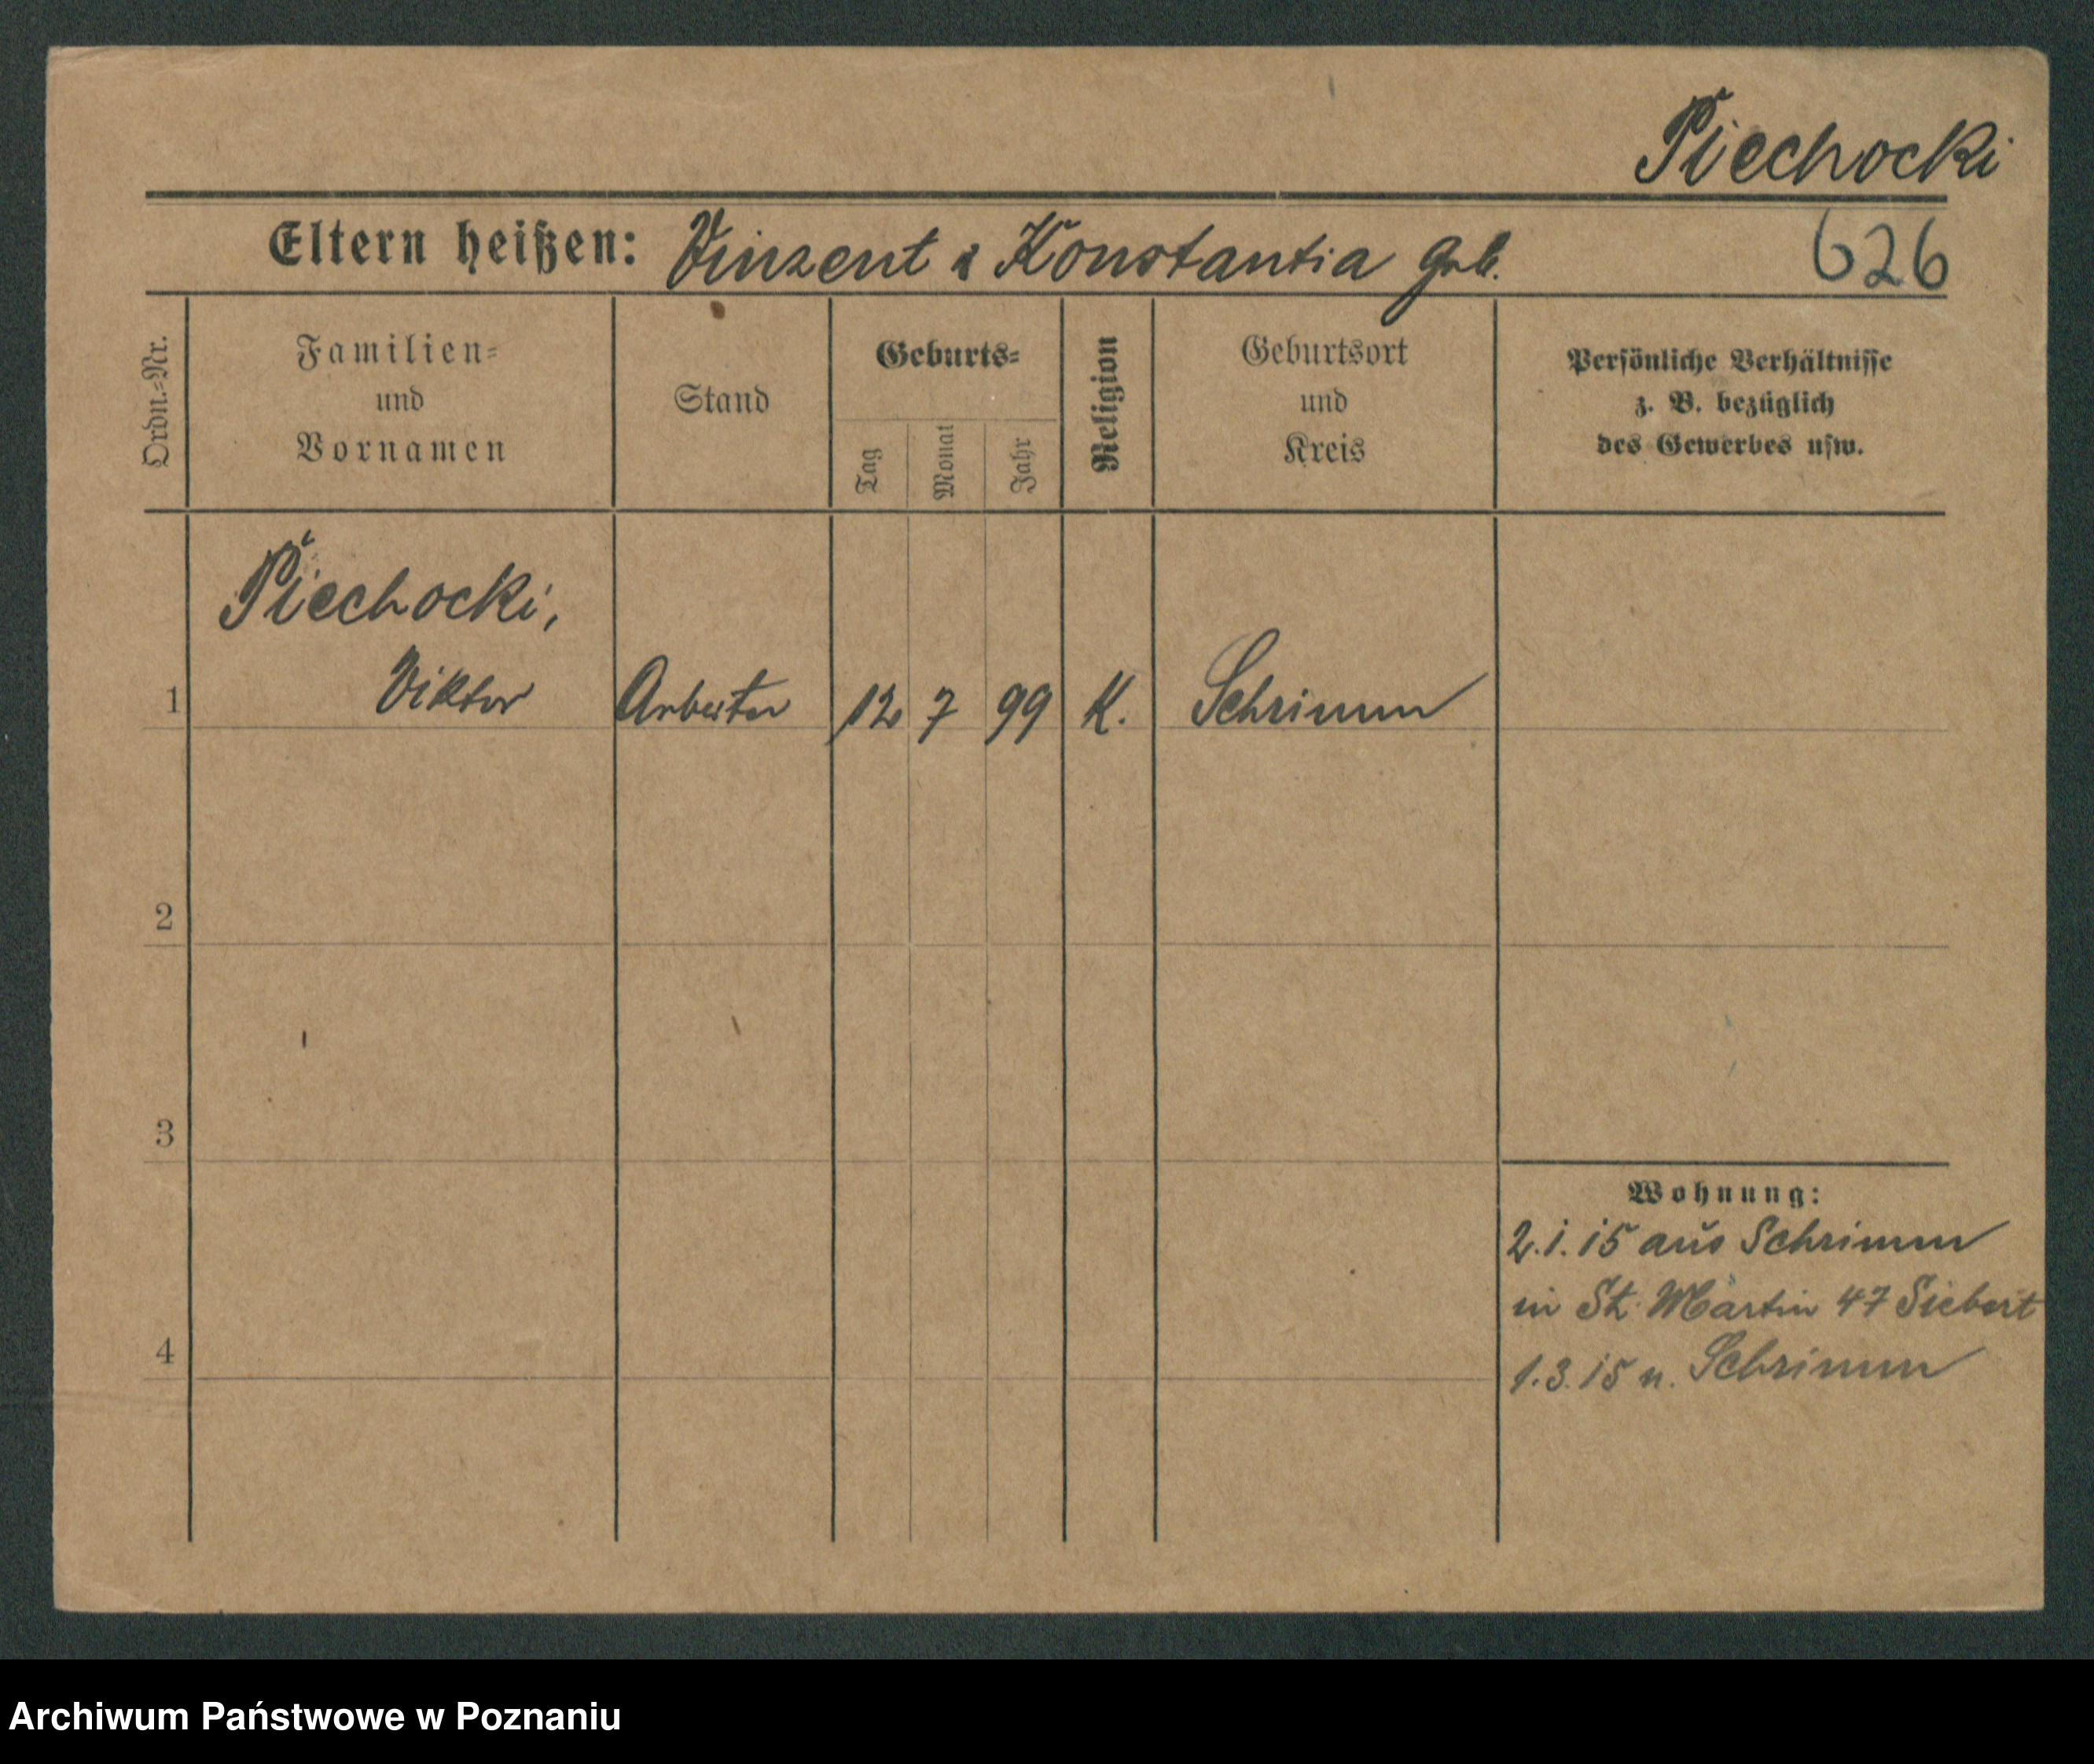 Piechocki
Eltern heißen: Vinzent & Konstantia geb.
626
Ordn.-Nr.
Familien-
und
Vornamen
Stand
Geburts-
Tag
Monat
Jahr
Religion
Geburtsort
und
Kreis
Persönliche Verhältnisse
z. B. bezüglich
des Gewerbes usw.
Piechocki,
1 Viktor Arbeiter 12 7 99 K. Schrimm
2
3
4
Wohnung:
2.1.15 aus Schrimm
in St. Martin 47 Siebert
1.3.15 n. Schrimm
Archiwum Państwowe w Poznaniu